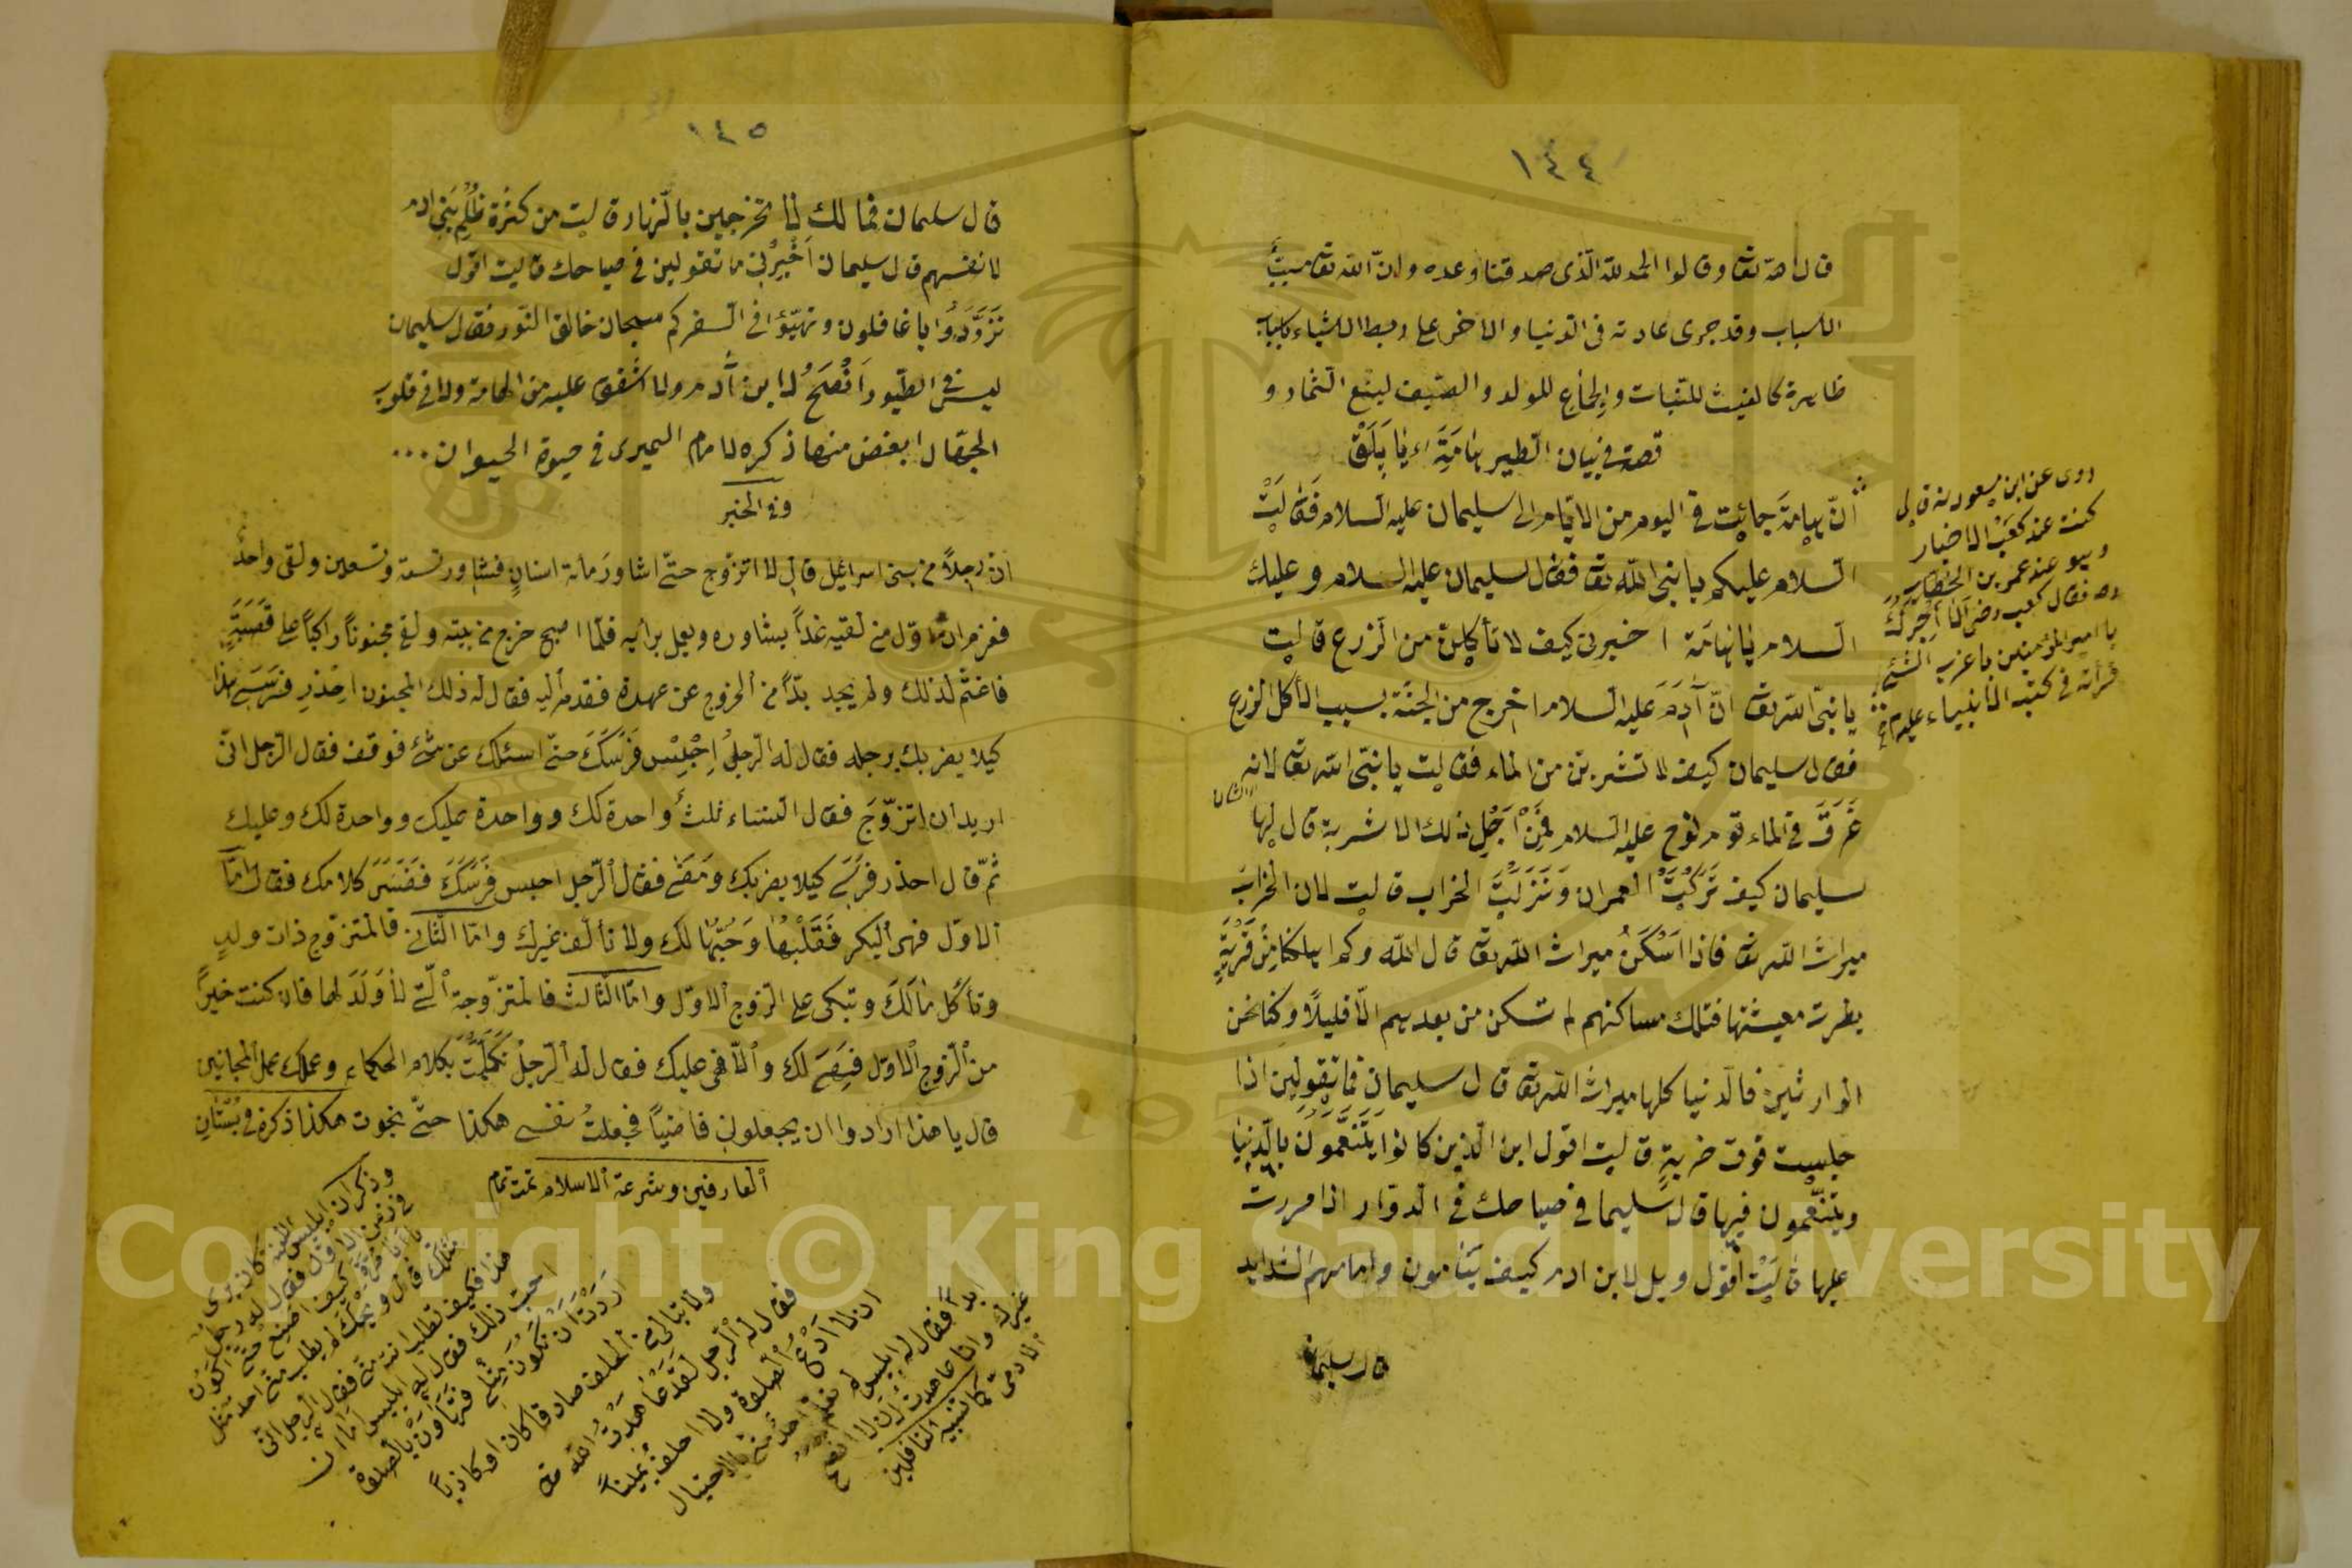 ١٤٤
قال الله تعا وقالوا الحمد لله الذى صدقنا وعده وانّ الله تعا مسبّب
الاسباب وقد جرى عادته فى الدنيا والاخر على ربط الاشياء باسباب
ظاهرة كالغيث للنبات والجماع للولد والصيف لينع الثمار و
قصة فى بيان الطير هامَة اى بايَلَقْ
أنّ هامةَ جائِت فى اليوم من الايّام الى سليمان عليه السلام فَقالَتْ
السلام عليكم يا نبى الله تعا فقال سليمان عليه السلام وعليك
السلام يا هامَة اخبرنى كيف لا تأكلين من الزرع قالت
يا نبىّ الله تعا انّ آدَمَ عليه السلام اخرج من الجنّة بسبب الأكل الزرع
فقال سليمان كيف لا تشربين من الماء فقالت يا نبىّ الله تعا لانه
غَرَقَ فى الماء قوم نوح عليه السلام فَمِنْ اَجْلِ ذلك لا اشربه قال لها
سليمان كيف تَرَكْتَ العمران وَنَزَلَتَ الخراب قالت لان الخراب
ميراث الله تعا فانا اَسْكَنُ ميراث الله تعا قال الله وكم اهلكنا مِنْ قَرْيَةٍ
بطرت معيشتها فتلك مساكنهم لم تسكن من بعدهم الّا قليلًا وكنا نحن
الوارثين فالدنيا كلها ميراث الله تعا قال سليمان فما تقولين اذا
جلست فوق خربةٍ قالت اقول اين الذين كانوا يَتَنَعَّمُونَ بالدنيا
ويتنعّمون فيها قال سليما فى صياحك فى الدوّار اذا مررت
عليها قالَتْ أقول ويل لابن ادم كيف يَنامون وامامهم الشدايد
قال سليمان
روى عن ابن مسعود انه قال
كنت عند كعَبْ الاحبار
وهو عند عمر بن الخطاب
رض فقال كعب رض ألا أخبرك
يا امير المؤمنين باغرب الشئ
قرأته فى كتب الانبياء عليهم
١٤٥
قال سليمان فما لك لا تخرجين بالنهار قالت من كثرة ظُلْمِ بَنى ادم
لانفسهم قال سليمان اَخْبِرْنى ما تقولين فى صياحك قالت اقول
تَزَوَّدُوا يا غافلون وتهيّؤا فى السفركم سبحان خالق النّور فقال سليمان
ليس فى الطّيور اَنْصَحُ لابن آدم ولا اشفق عليه من الهامة ولا فى قلوب
الجهّال ابغض منها ذكره الامام الدميرى فى حيوة الحيوان ...
وفى الخبر
ان رجلاً من بنى اسرائيل قال لا اتزوج حتّى اشاور مائة انسانٍ فشاور تسعة وتسعين ولقى واحدٌ
فعزم ان اوّل من لقيه غداً يشاوره ويعمل برأيه فلمّا اصبح خرج من بيته ولقى مجنوناً راكباً على قَصَبَةٍ
فاغتمّ لذلك ولم يجد بدّاً من الخروج عن عهدة فقدم أليه فقال له ذلك المجنون احذر فَرَسَىِ هذا
كيلا يضربك برجله فقال له الرجلُ اِحْبِسْ فَرَسَكَ حتّى اسئلك عن شئ فوقف فقال الرجل انّى
اريد ان اتزوّجَ فقال النساء ثلثٌ واحدة لك وواحدة عليك وواحدة لك وعليك
ثمّ قال احذر فرسى كيلا يضربك وَمَضٰى فقال الرّجل احبس فَرَسَكَ فَفَسَّرَ كلامك فقال امّا
الاوّل فهى البكر فَقَلْبُها وَحُبُّها لك ولا تألف غيرك وامّا الثّانى فالمتزوّج ذات ولدٍ
وتأكل مٰالَكَ وتبكى على الزوج الاوّل وامّا الثّالث فالمتزوّجة الّتى لا وَلَدَ لها فان كنت خيراً
من الزوج الاوّل فهى لك والّا فهى عليك فقال له الرّجلُ تَكَلَّمْتَ بكلام الحكماء وعملك عمل المجانين
قال يا هذا ارادوا ان يجعلونى قاضياً فجعلتُ نفسى هكذا حتّى نجوت هكذا ذكره فى بُسْتانِ
العارفين وشرعة الاسلام تمت تمام
وذكر ان ابليس اللعنه كان يرى
فى زمن الاوّل فقال له رجل
كيف اصنع حتى اكون
مثلك قال ويحك لم يطلب منى احد مثل
هذا فكيف تطلب انت منى فقال الرجل انى
احبّ ذلك فقال له ابليس امّا ان
اردت ان تكون مثلى فتهاون بالصلوة
ولا تبالى من الحلف صادقا كان او كاذباً
فقال له الرجل لقد عاهدت الله
ان لا ادع الصلوة ولا احلف يميناً
ابداً فقال له ابليس لم يتعلم احد منى بالاحتيال
غيرك وانا عاهدت ان لا انصح
الادمى كما تنبيه الغافلين